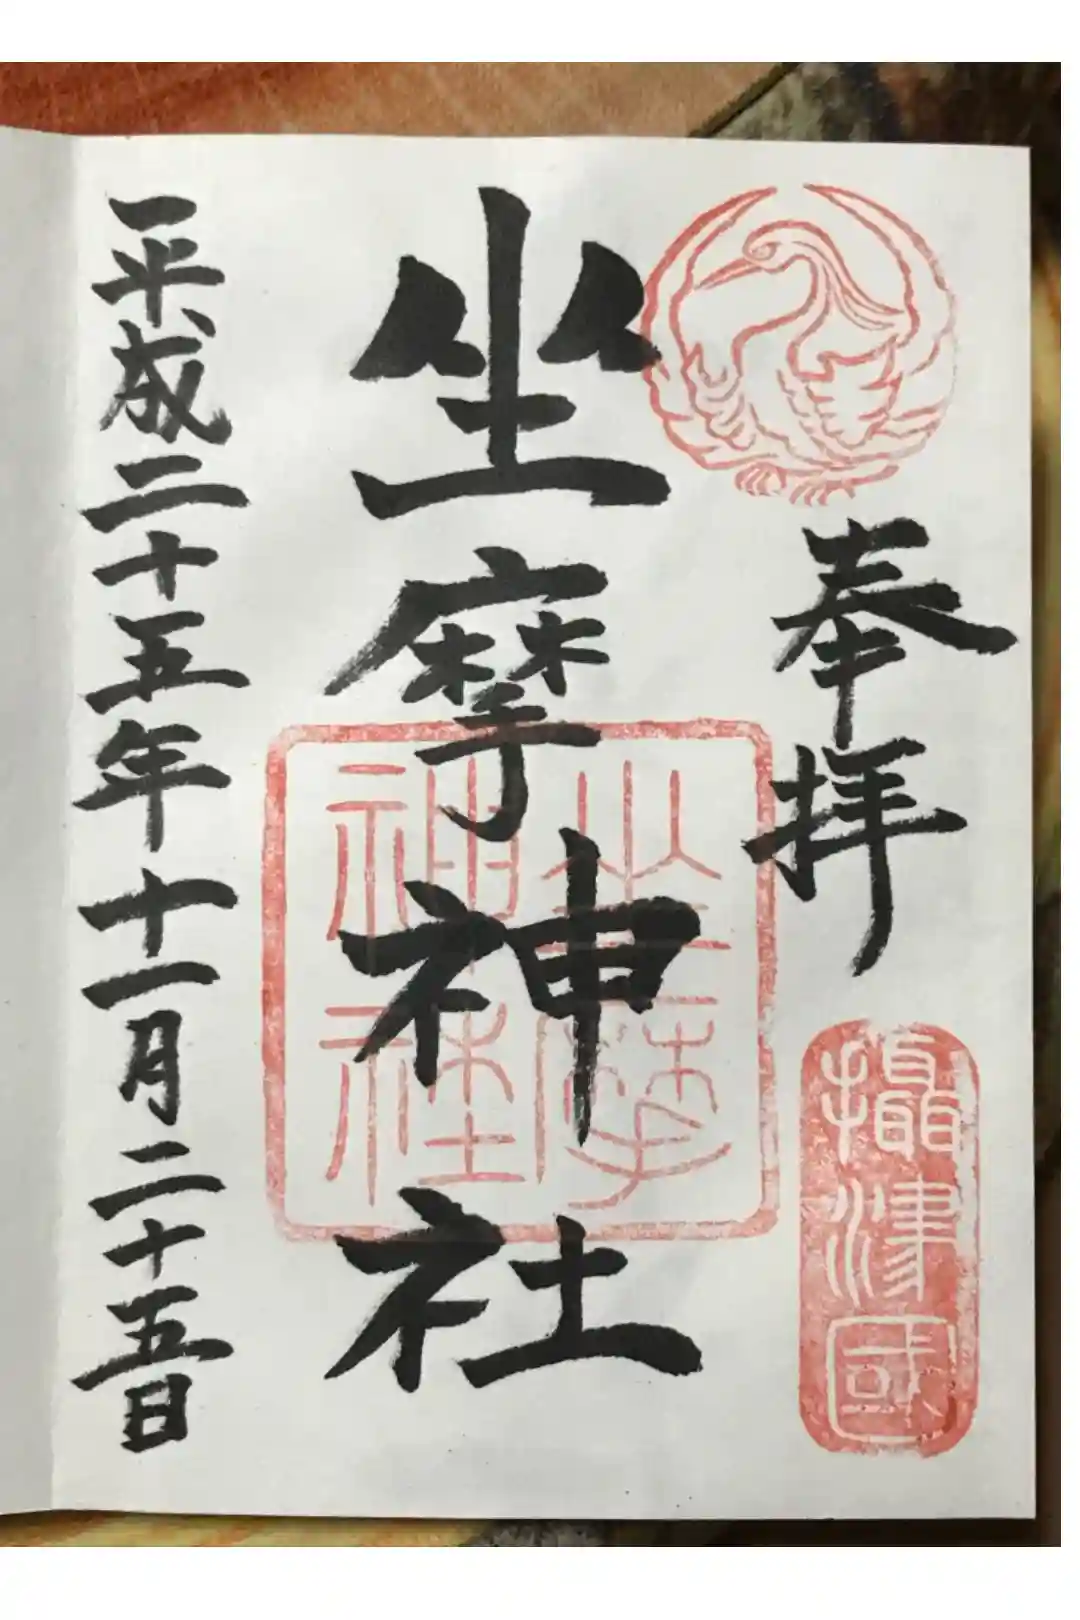 奉拝
攝津國
坐摩神社
坐摩
神社
平成二十五年十一月二十五日